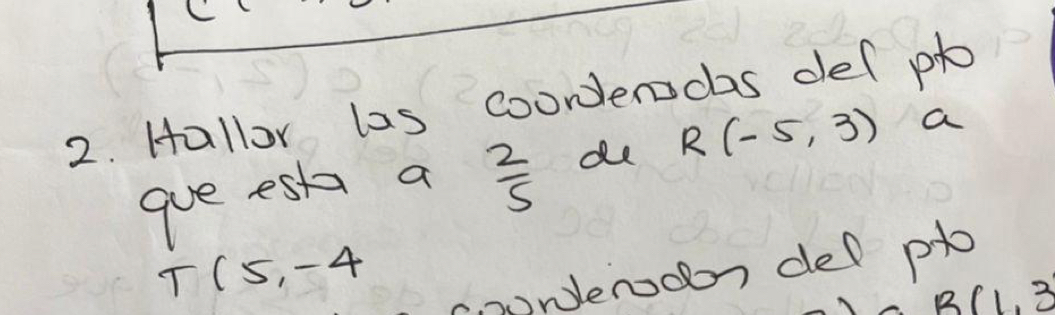 2. Hallar las coordenadas del pto
que esta a 2/5 de R(-5, 3) a
T(5,-4
coordenadas del pto
B(1, 3